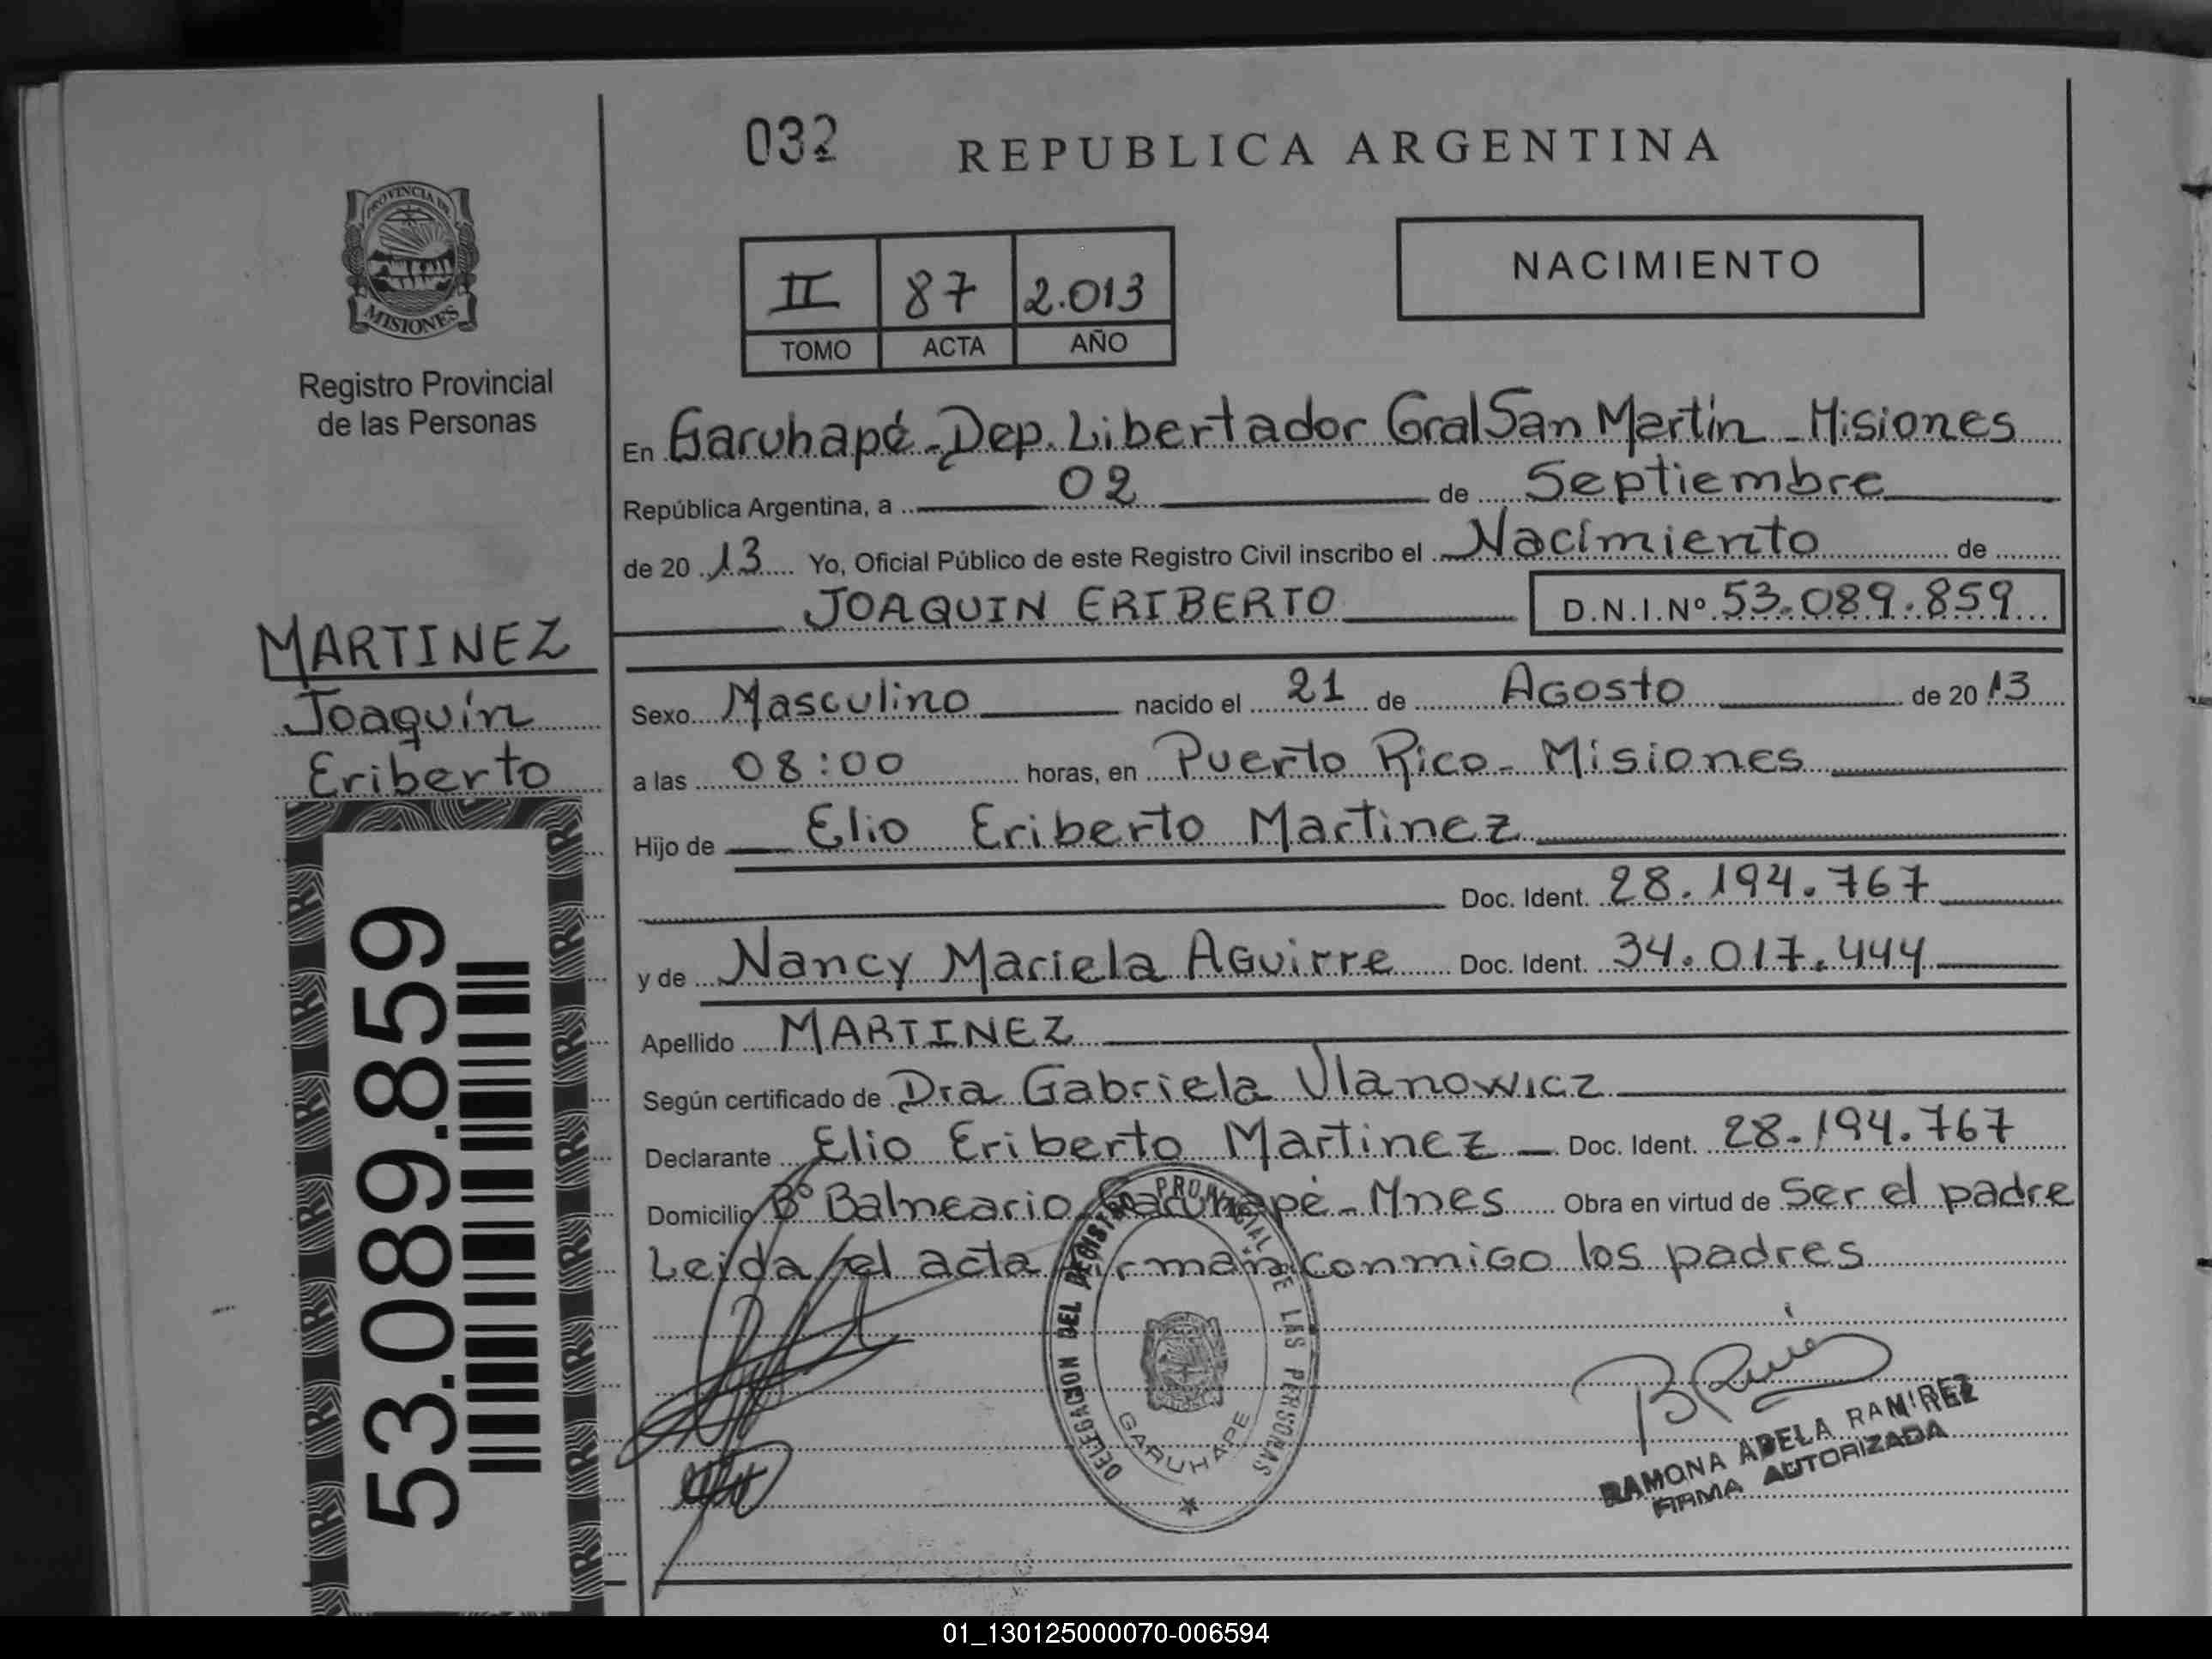 032 REPUBLICA ARGENTINA
PROVINCIA DE
MISIONES
Registro Provincial
de las Personas
II 87 2.013
TOMO ACTA AÑO
NACIMIENTO
En Garuhapé - Dep. Libertador Gral San Martín - Misiones
República Argentina, a 02 de Septiembre
de 20 13 Yo, Oficial Público de este Registro Civil inscribo el Nacimiento de
JOAQUIN ERIBERTO D.N.I.Nº 53.089.859
MARTINEZ
Joaquín
Eriberto
53.089.859
Sexo Masculino nacido el 21 de Agosto de 20 13
a las 08:00 horas, en Puerto Rico - Misiones
Hijo de Elio Eriberto Martinez
Doc. Ident. 28.194.767
y de Nancy Mariela Aguirre Doc. Ident. 34.017.444
Apellido MARTINEZ
Según certificado de Dra Gabriela Ulanowicz
Declarante Elio Eriberto Martinez Doc. Ident. 28.194.767
Domicilio Bº Balneario Garuhapé - Mnes Obra en virtud de Ser el padre
Leida el acta firman conmigo los padres
DELEGACION DEL REGISTRO PROVINCIAL DE LAS PERSONAS
GARUHAPE
RAMONA ADELA RAMIREZ
FIRMA AUTORIZADA
01_130125000070-006594